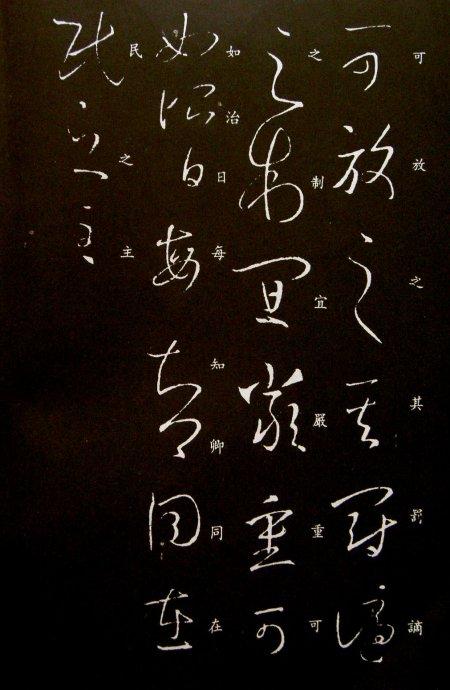 可放之其罰謫
之制宜嚴重可
如治日每知卿同在
民之主